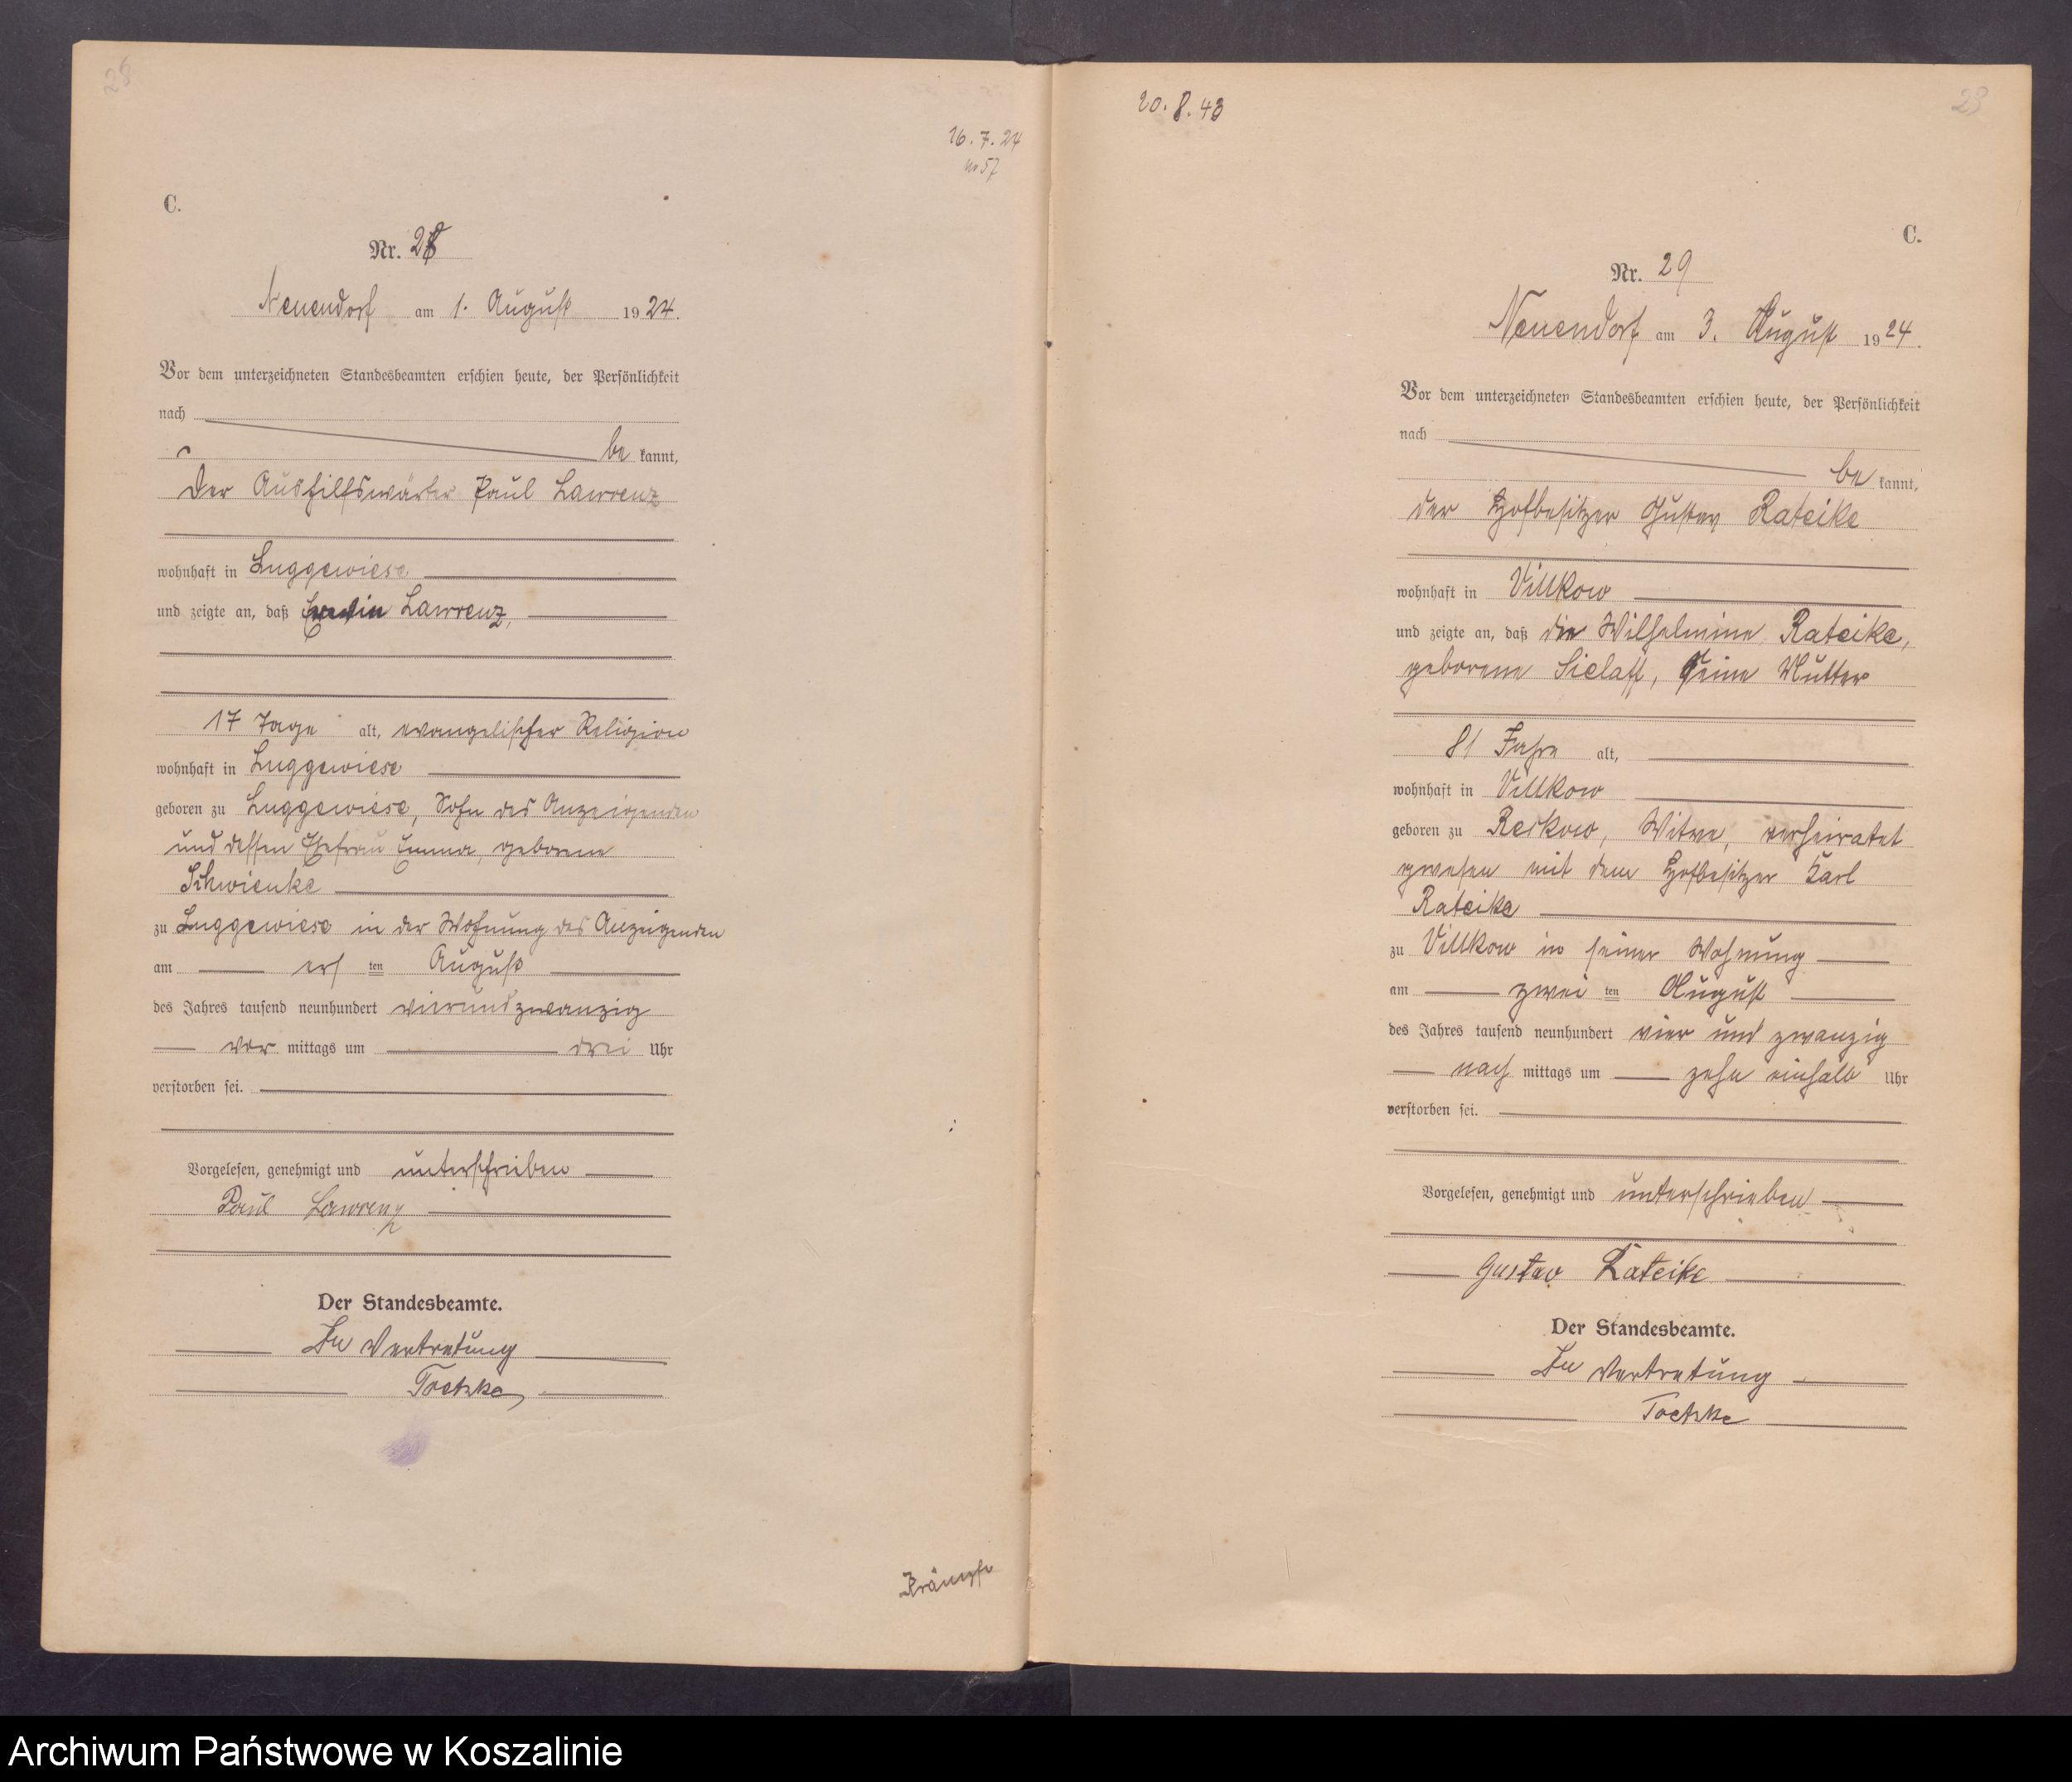 28
16.7.24
No 57
C.
Nr. 28
Neuendorf am 1. August 1924.
Vor dem unterzeichneten Standesbeamten erschien heute, der Persönlichkeit
nach
be kannt,
der Aushilfswärter Paul Lawrenz
wohnhaft in Luggewiese
und zeigte an, daß Erwin Lawrenz,
17 Tage alt, evangelischer Religion
wohnhaft in Luggewiese
geboren zu Luggewiese, Sohn des Anzeigenden
und dessen Ehefrau Emma, geborene
Schwienke
zu Luggewiese in der Wohnung des Anzeigenden
am ers ten August
des Jahres tausend neunhundert vierundzwanzig
vor mittags um drei Uhr
verstorben sei.
Vorgelesen, genehmigt und unterschrieben
Paul Lawrenz
Der Standesbeamte.
In Vertretung
Toetzke
Krämpfe
20.8.43
29
C.
Nr. 29
Neuendorf am 3. August 1924.
Vor dem unterzeichneten Standesbeamten erschien heute, der Persönlichkeit
nach
be kannt,
der Hofbesitzer Gustav Rateike
wohnhaft in Villkow
und zeigte an, daß die Wilhelmine Rateike,
geborene Sielaff, seine Mutter
81 Jahre alt,
wohnhaft in Villkow
geboren zu Reckow, Witwe, verheiratet
gewesen mit dem Hofbesitzer Karl
Rateike
zu Villkow in seiner Wohnung
am zwei ten August
des Jahres tausend neunhundert vier und zwanzig
nach mittags um zehn einhalb Uhr
verstorben sei.
Vorgelesen, genehmigt und unterschrieben
Gustav Rateike
Der Standesbeamte.
In Vertretung
Toetzke
Archiwum Państwowe w Koszalinie